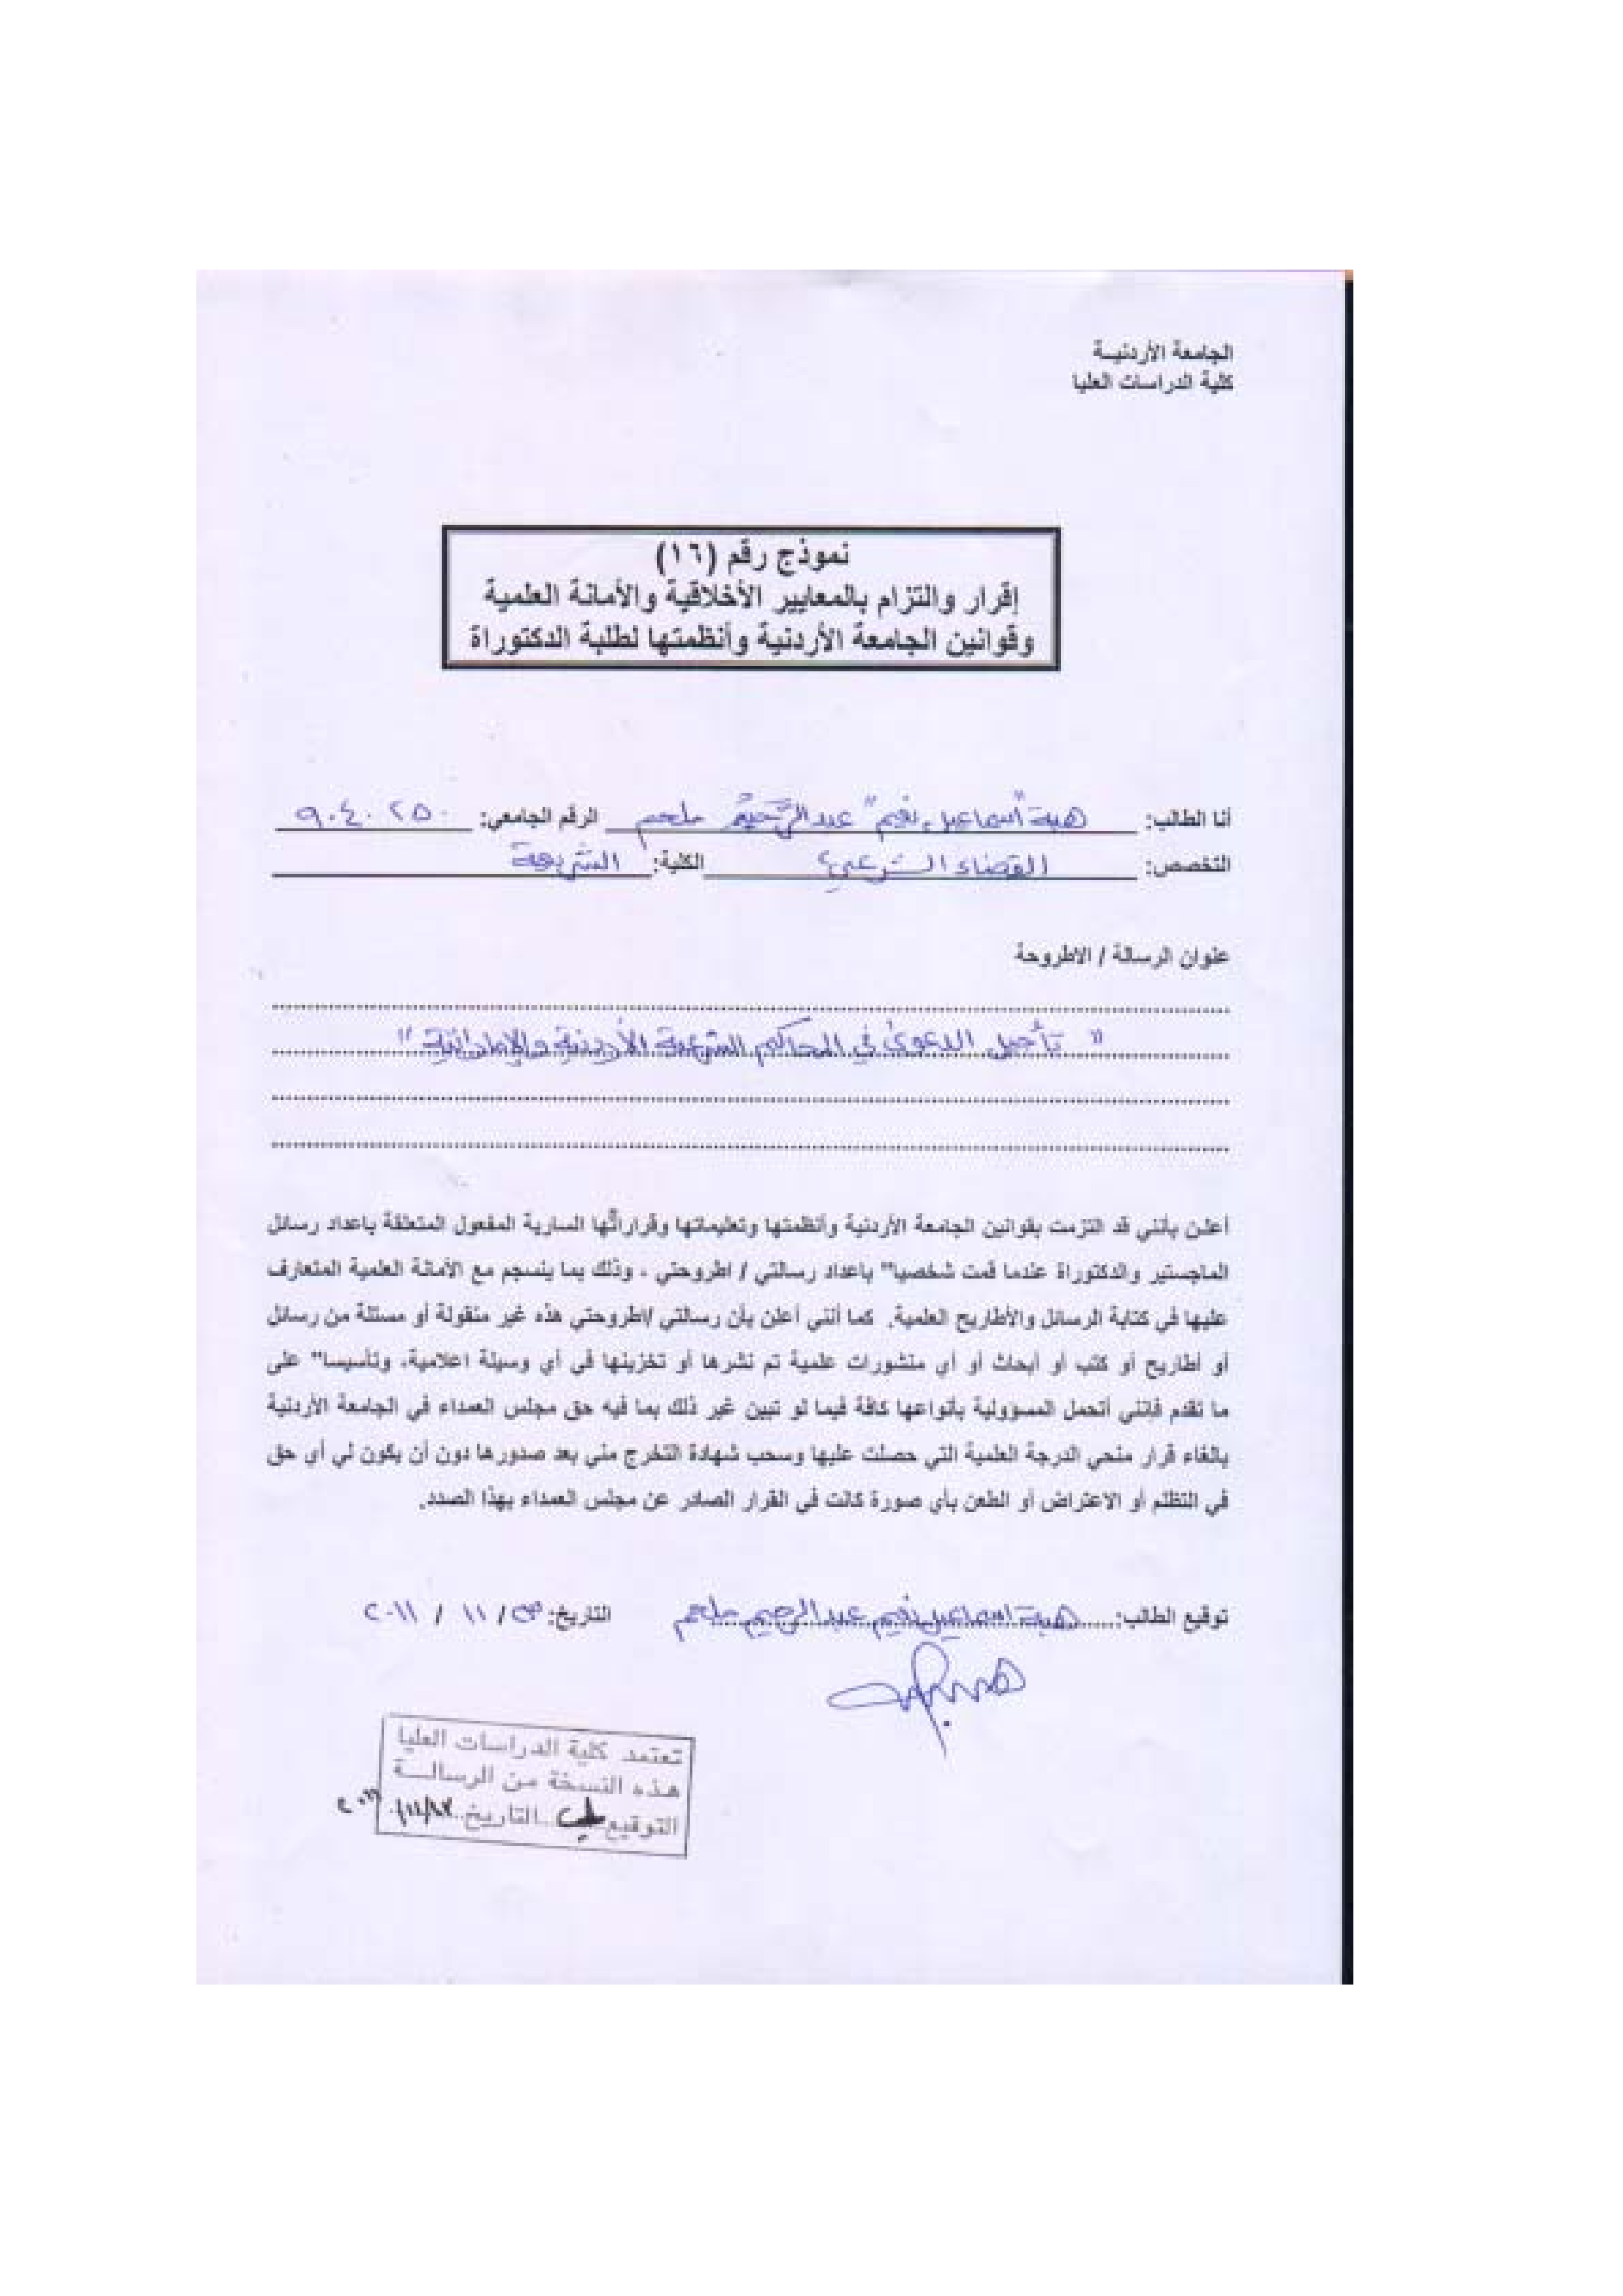 الجامعة الأردنيـة
كلية الدراسات العليا
نموذج رقم (١٦)
إقرار والتزام بالمعايير الأخلاقية والأمانة العلمية
وقوانين الجامعة الأردنية وأنظمتها لطلبة الدكتوراة
أنا الطالب: هبة "اسماعيل نعيم" عبد الرحيم ملحم الرقم الجامعي: ٩٠٤٠٢٥٠
التخصص: القضاء الشرعي الكلية: الشريعة
عنوان الرسالة / الاطروحة
" تأجيل الدعوى في المحاكم الشرعية الأردنية والإماراتية "
أعلن بأنني قد التزمت بقوانين الجامعة الأردنية وأنظمتها وتعليماتها وقراراتها السارية المفعول المتعلقة باعداد رسائل
الماجستير والدكتوراة عندما قمت شخصيا" باعداد رسالتي / اطروحتي ، وذلك بما ينسجم مع الأمانة العلمية المتعارف
عليها في كتابة الرسائل والأطاريح العلمية. كما أنني أعلن بأن رسالتي /اطروحتي هذه غير منقولة أو مستلة من رسائل
أو أطاريح أو كتب أو أبحاث أو أي منشورات علمية تم نشرها أو تخزينها في أي وسيلة اعلامية، وتأسيسا" على
ما تقدم فإنني أتحمل المسؤولية بأنواعها كافة فيما لو تبين غير ذلك بما فيه حق مجلس العمداء في الجامعة الأردنية
بالغاء قرار منحي الدرجة العلمية التي حصلت عليها وسحب شهادة التخرج مني بعد صدورها دون أن يكون لي أي حق
في التظلم أو الاعتراض أو الطعن بأي صورة كانت في القرار الصادر عن مجلس العمداء بهذا الصدد.
توقيع الطالب: هبة اسماعيل نعيم عبد الرحيم ملحم التاريخ: / ١١ / ٢٠١١
تعتمد كلية الدراسات العليا
هذه النسخة من الرسالـــة
التوقيع التاريخ